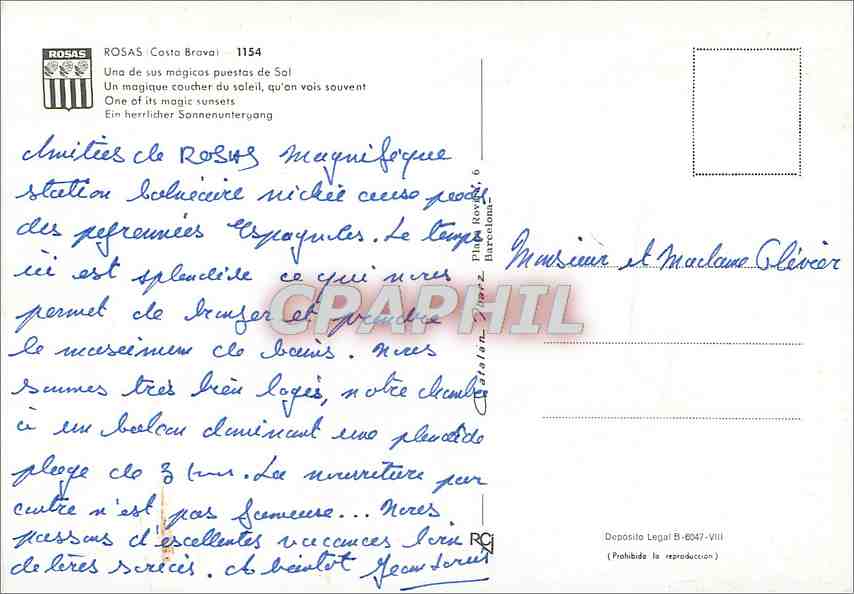 ROSAS
ROSAS (Costa Brava) - 1154
Una de sus mágicas puestas de Sol
Un magique coucher du soleil, qu'on vois souvent
One of its magic sunsets
Ein herrlicher Sonnenuntergang
Amitiés de ROSAS Magnifique
station balnéaire nichée aux pieds
des pyrennées Espagnoles. Le temps
ici est splendide ce qui nous
permet de bronzer et prendre
le maximum de bains. Nous
sommes très bien logés, notre chambre
à un balcon dominant une splendide
plage de 3 kms. La nourriture par
contre n'est pas fameuse... Nous
passons d'excellentes vacances loin
de tères soucis. A bientot Jean Louis
Monsieur et Madame Olévier
Catalan Ibarz Plaza Rovira, 6
Barcelona-
CPAPHIL
RC
Depósito Legal B-6047-VIII
(Prohibida la reproducción)